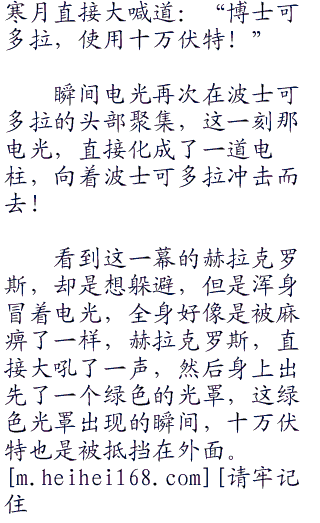 寒月直接大喊道：“博士可
多拉，使用十万伏特！”
瞬间电光再次在波士可
多拉的头部聚集，这一刻那
电光，直接化成了一道电
柱，向着波士可多拉冲击而
去！
看到这一幕的赫拉克罗
斯，却是想躲避，但是浑身
冒着电光，全身好像是被麻
痹了一样，赫拉克罗斯，直
接大吼了一声，然后身上出
先了一个绿色的光罩，这绿
色光罩出现的瞬间，十万伏
特也是被抵挡在外面。
[m.heihei168.com][请牢记
住